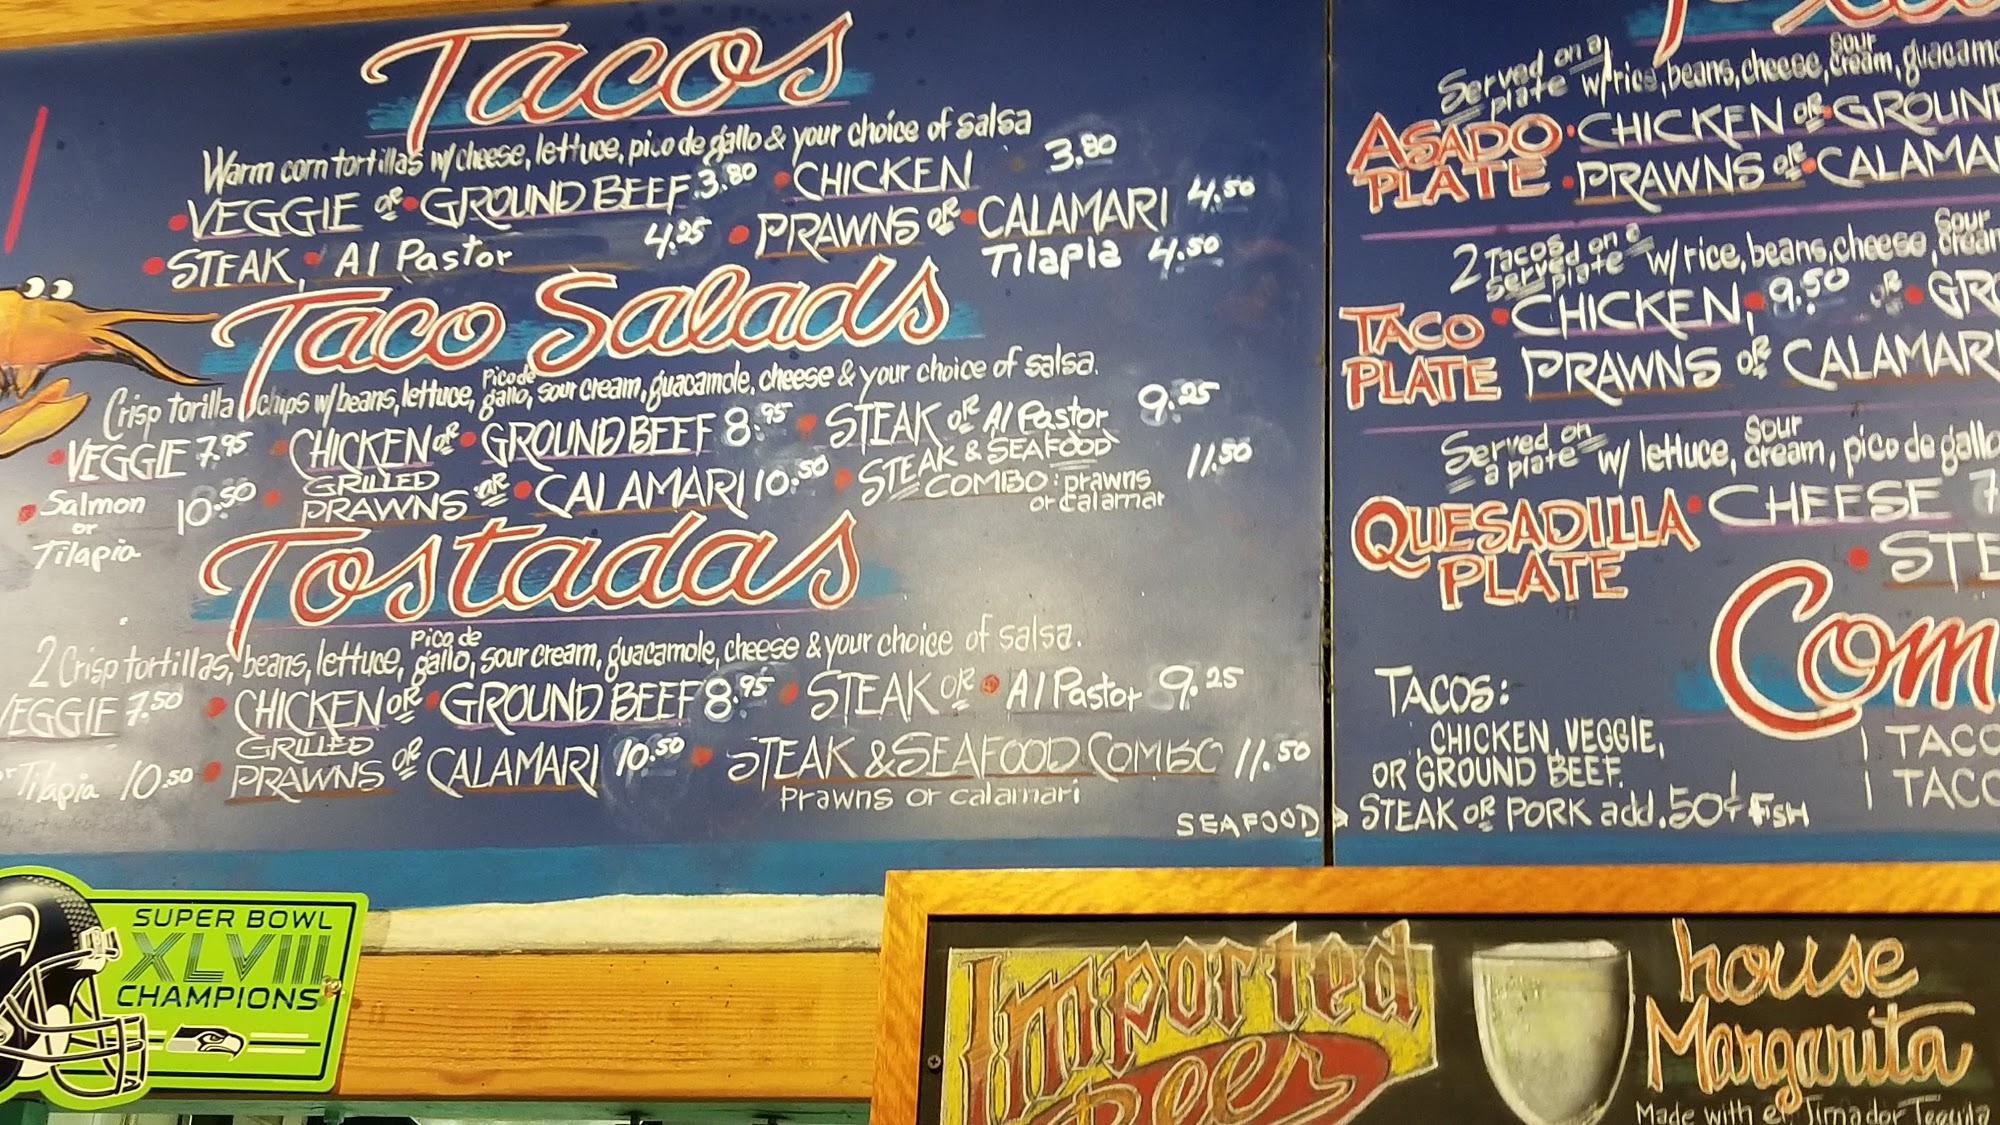 Tacos
Warm corn tortillas w/ cheese, lettuce, pico de gallo & your choice of salsa
• VEGGIE OR • GROUND BEEF 3.80 • CHICKEN 3.80
• STEAK, • Al Pastor 4.25 • PRAWNS OR • CALAMARI 4.50
Tilapia 4.50
Taco Salads
Crisp torilla chips w/ beans, lettuce, Pico de gallo, sour cream, guacamole, cheese & your choice of salsa.
• VEGGIE 7.95 • CHICKEN OR • GROUND BEEF 8.95 • STEAK OR Al Pastor 9.25
• Salmon or Tilapia 10.50 • GRILLED PRAWNS OR • CALAMARI 10.50 • STEAK & SEAFOOD COMBO: prawns or calamar 11.50
Tostadas
2 Crisp tortillas, beans, lettuce, Pico de gallo, sour cream, guacamole, cheese & your choice of salsa.
VEGGIE 7.50 • CHICKEN OR • GROUND BEEF 8.95 • STEAK OR • Al Pastor 9.25
or Tilapia 10.50 • GRILLED PRAWNS OR CALAMARI 10.50 • STEAK & SEAFOOD COMBO 11.50
Prawns or calamari
SEAFOOD
Served on a plate w/ rice, beans, cheese, sour cream, guacamo
ASADO PLATE • CHICKEN OR • GROUN
• PRAWNS OR • CALAMA
2 Tacos served on a plate w/ rice, beans, cheese, sour cream
TACO PLATE • CHICKEN, • 9.50 OR • GRO
PRAWNS OR CALAMARI
Served on a plate w/ lettuce, sour cream, pico de gallo
QUESADILLA PLATE • CHEESE 7
• STE
Com
TACOS:
CHICKEN, VEGGIE,
OR GROUND BEEF.
STEAK OR PORK add .50¢ FISH
1 TACO
1 TACO
SUPER BOWL
XLVIII
CHAMPIONS
Imported
Beer
house
Margarita
Made with el Jimador Tequila